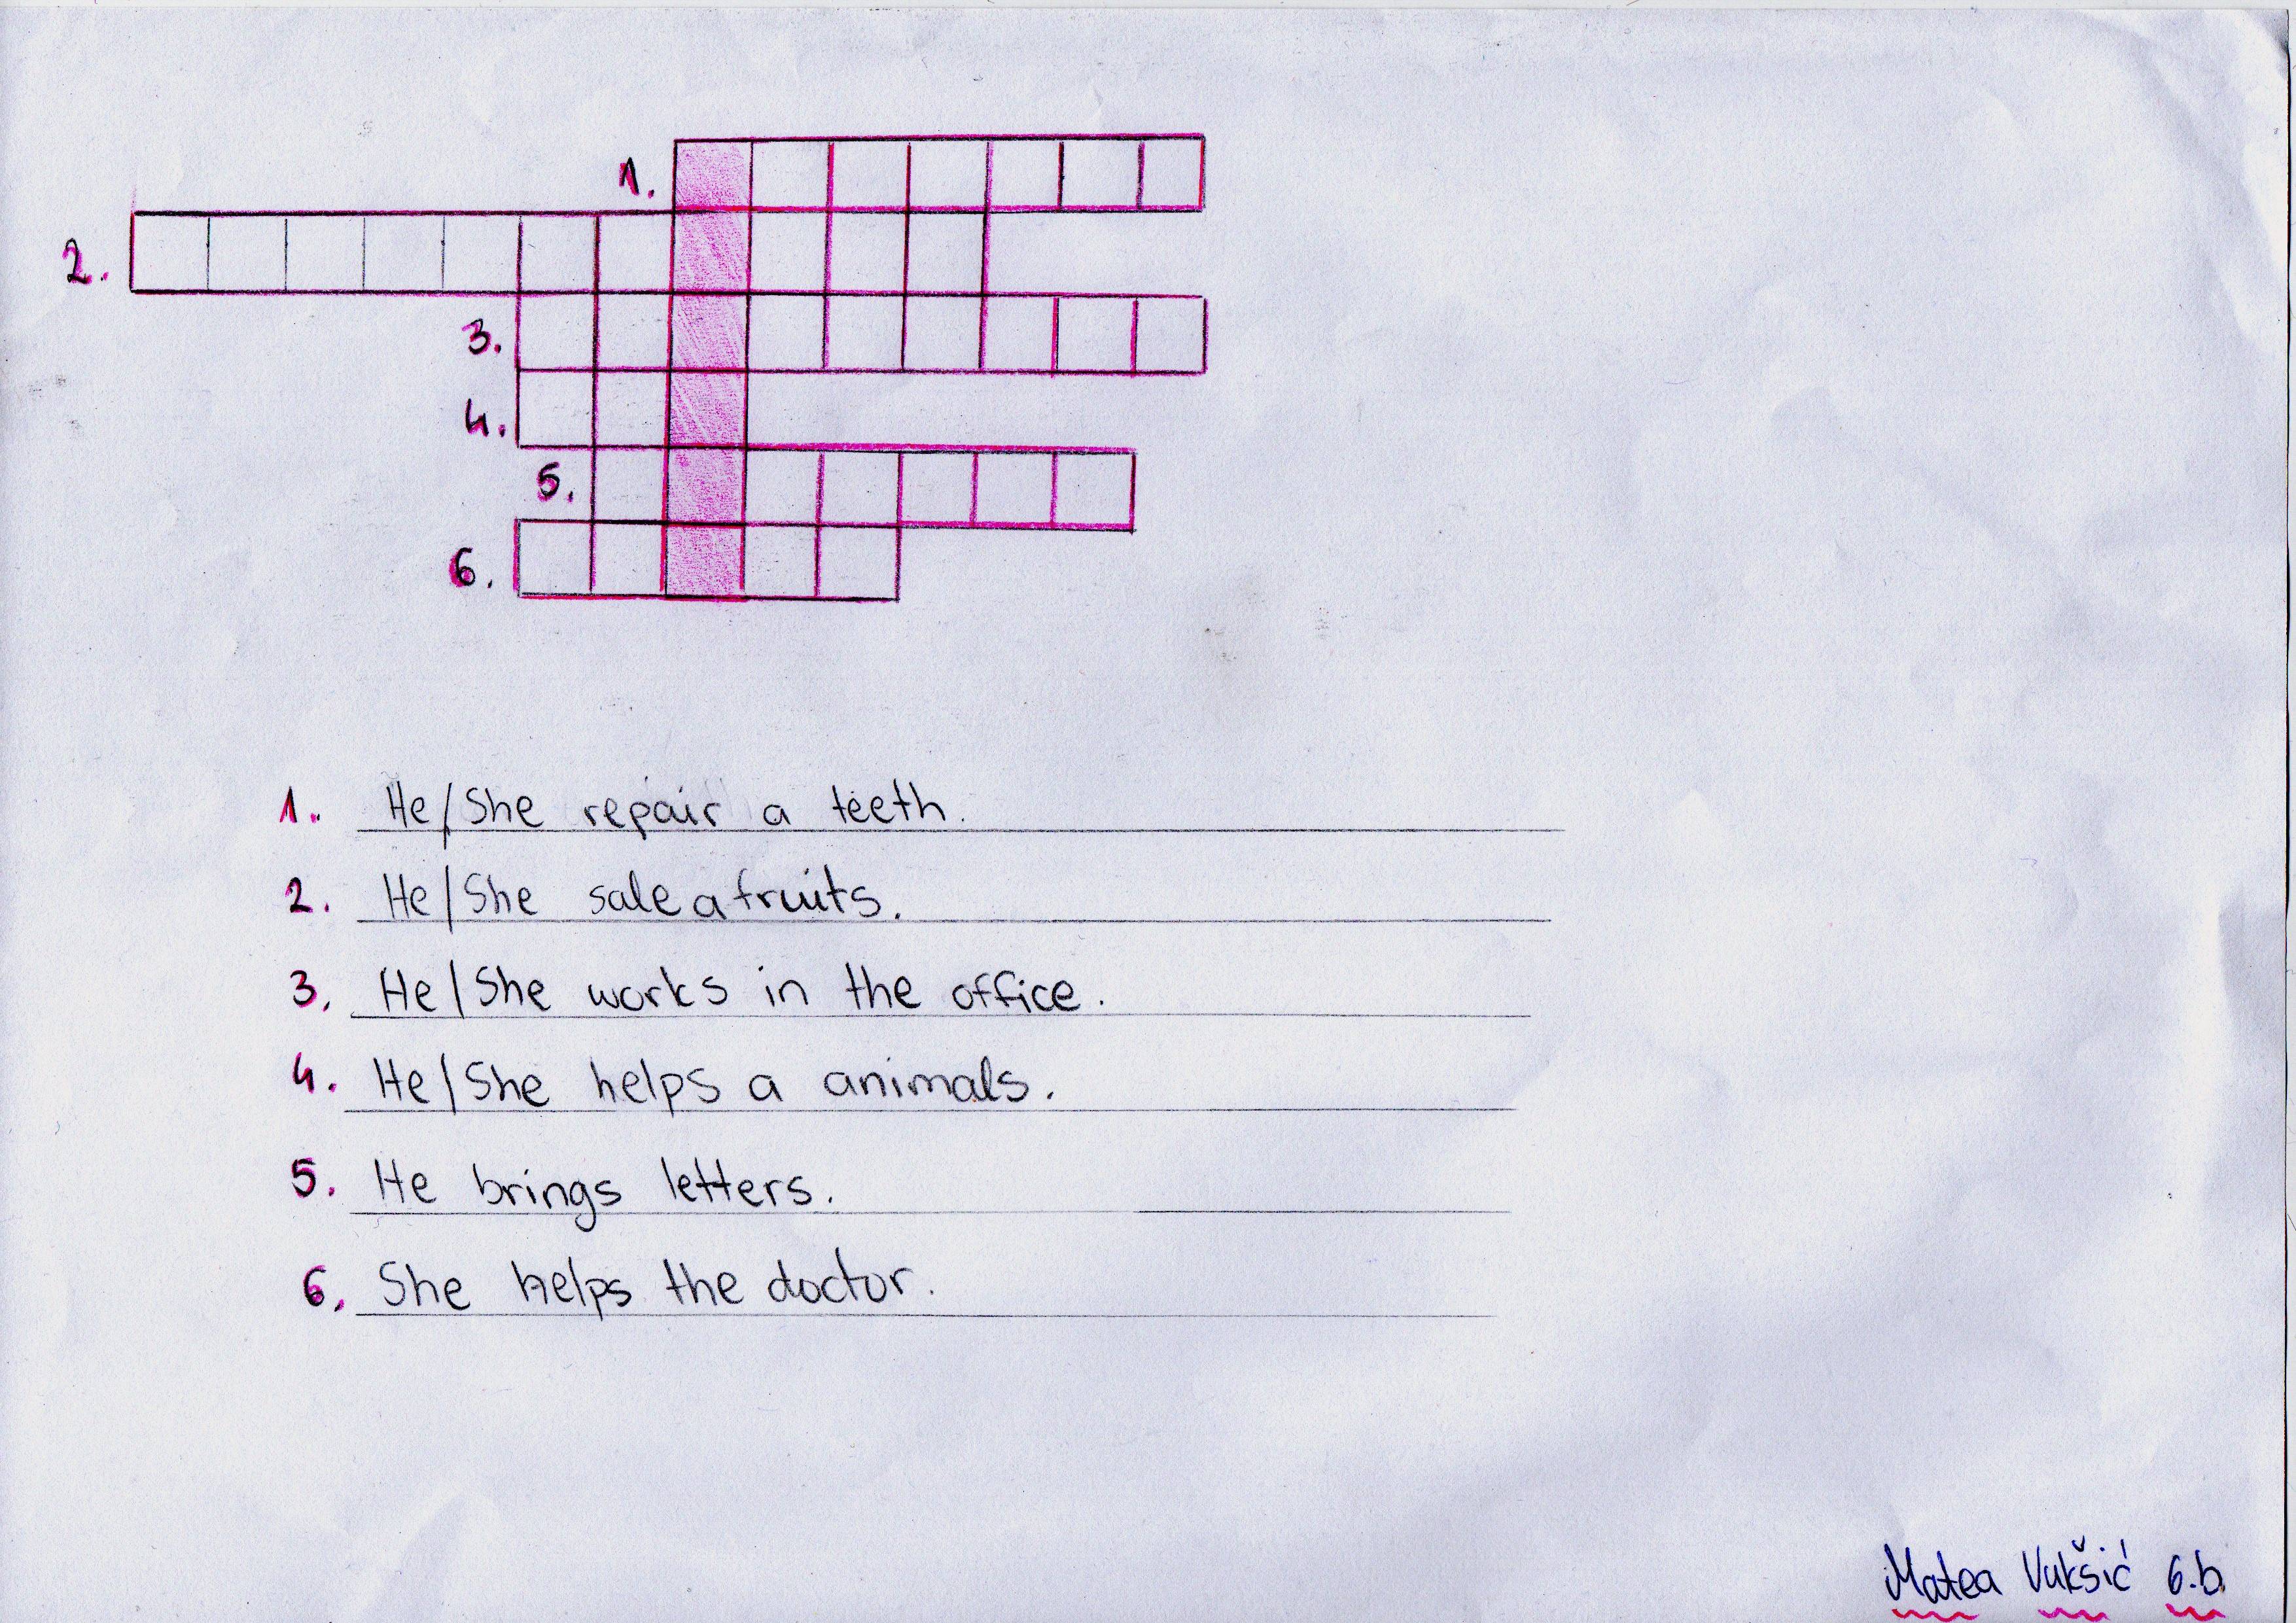 1.
2.
3.
4.
5.
6.
1. He/She repair a teeth.
2. He/She sale a fruits.
3. He/She works in the office.
4. He/She helps a animals.
5. He brings letters.
6. She helps the doctor.
Matea Vukšić 6.b